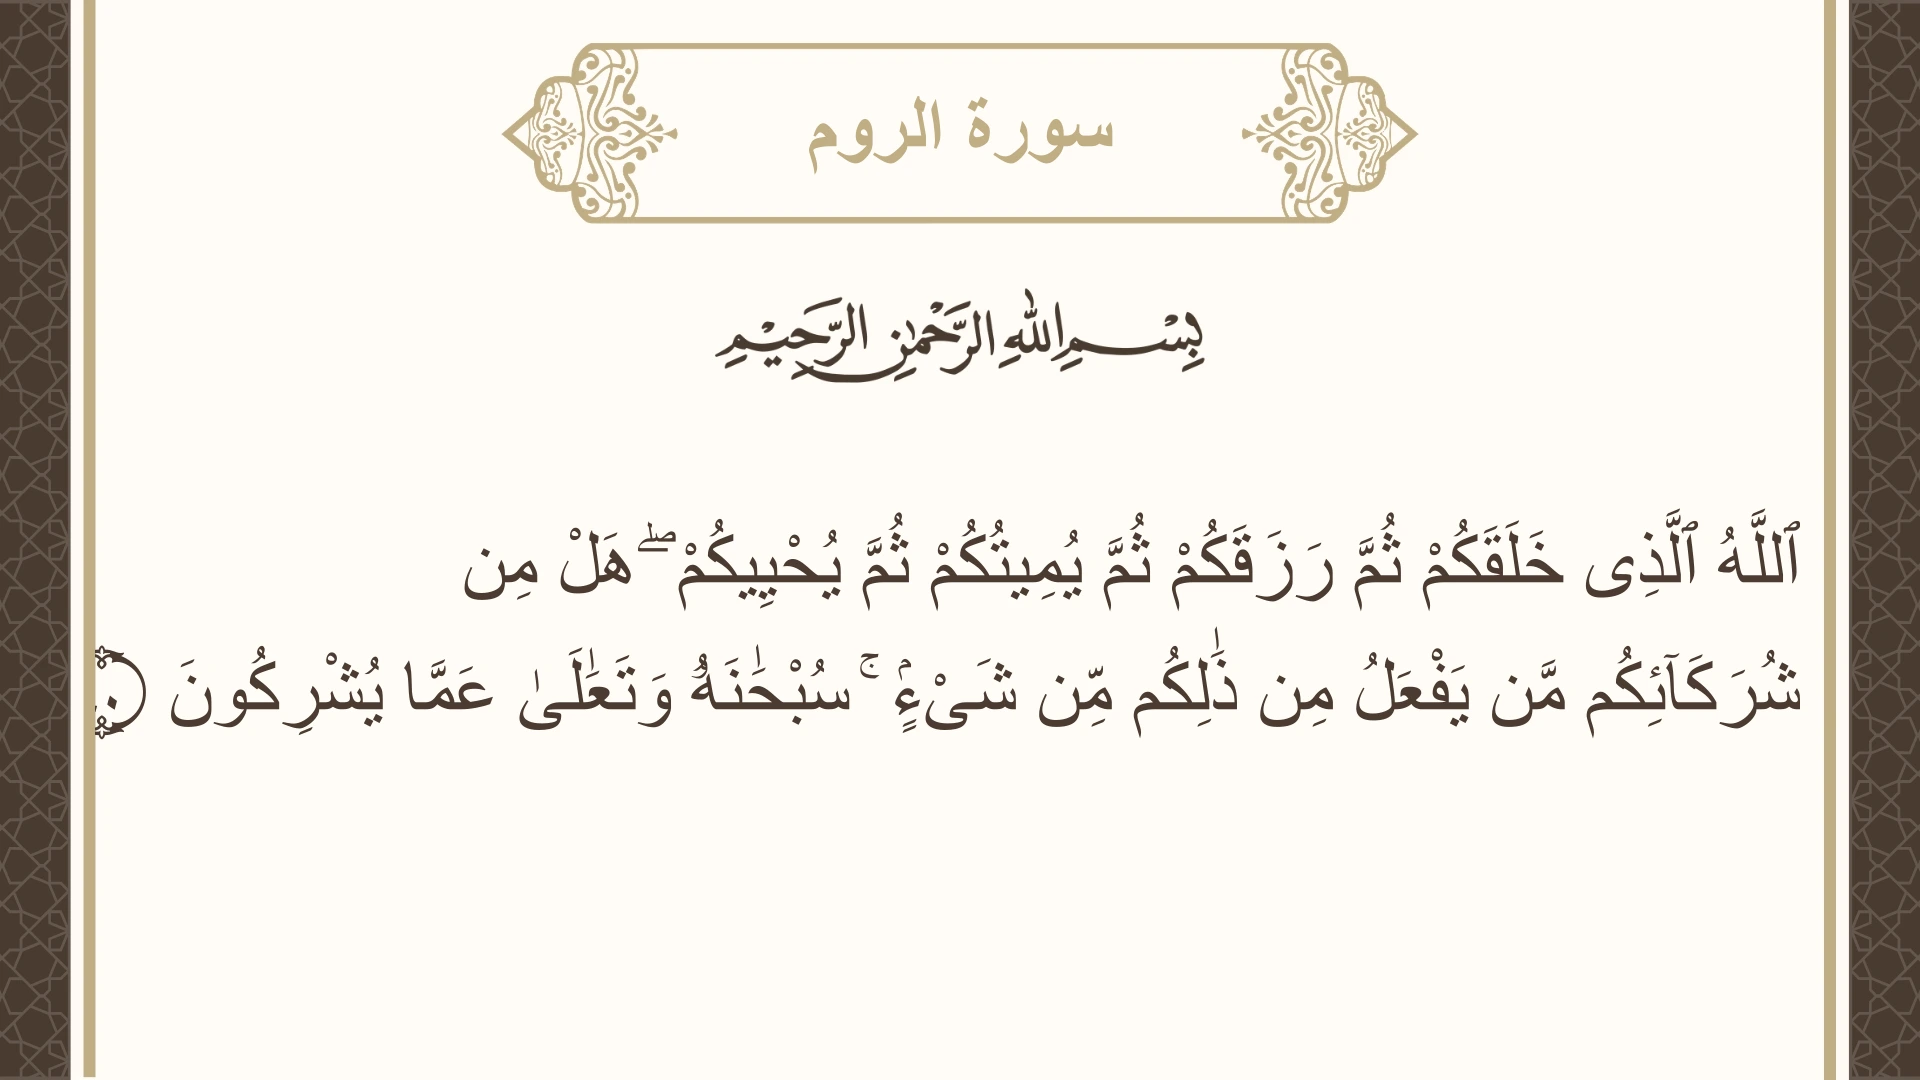 سورة الروم
بِسْمِ اللهِ الرَّحْمٰنِ الرَّحِيْمِ
ٱللَّهُ ٱلَّذِى خَلَقَكُمْ ثُمَّ رَزَقَكُمْ ثُمَّ يُمِيتُكُمْ ثُمَّ يُحْيِيكُمْ ۖ هَلْ مِن
شُرَكَآئِكُم مَّن يَفْعَلُ مِن ذَٰلِكُم مِّن شَىْءٍۢ ۚ سُبْحَـٰنَهُۥ وَتَعَـٰلَىٰ عَمَّا يُشْرِكُونَ